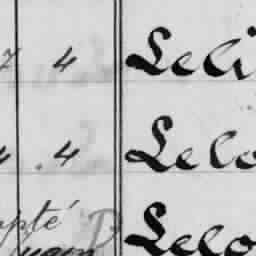 7 4 Leli
4 . 4 Lelo
pté
Lelo